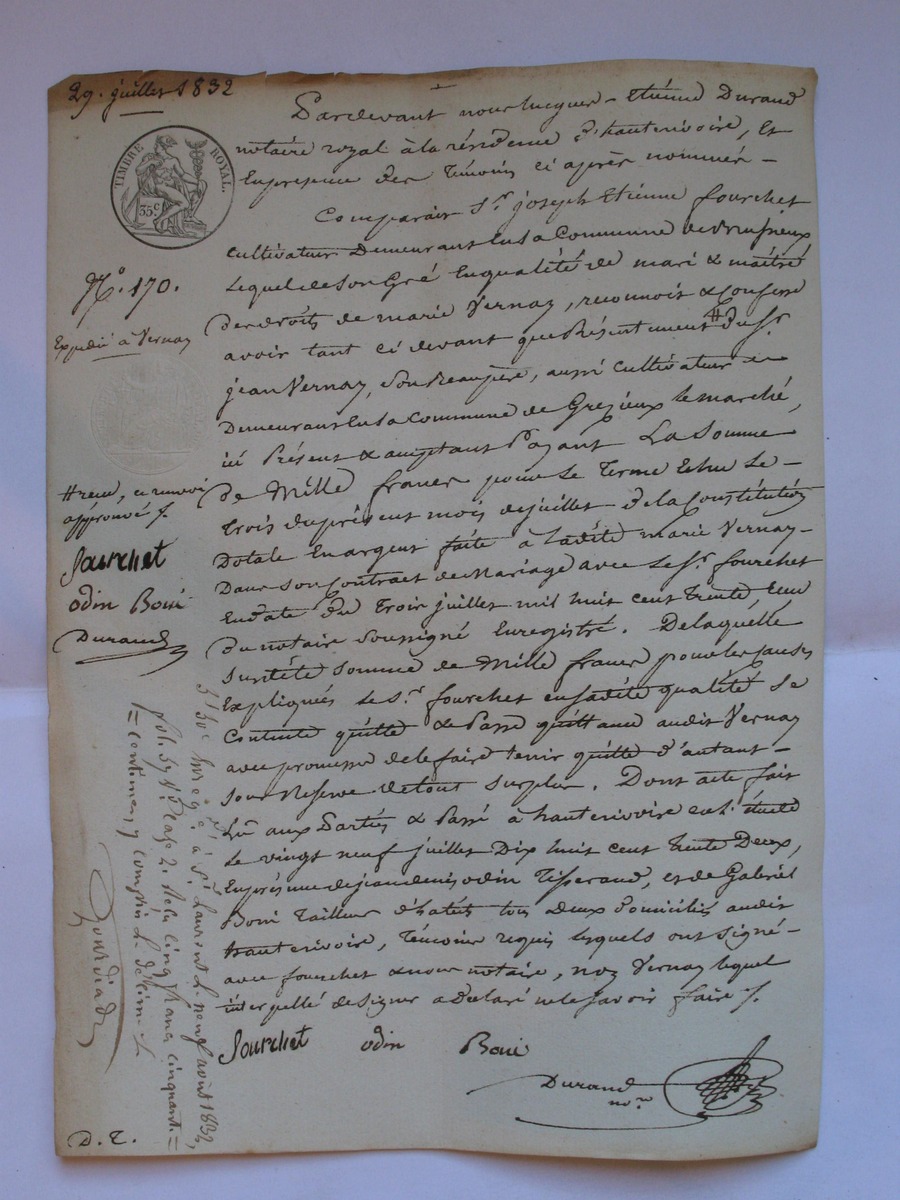 29. juillet 1832
Pardevant nous Jacques-Etienne Durand
notaire royal à la résidence d'hauterivoire, Et
En présence des Témoins ci après nommés -
Comparait Sr. joseph Etienne fourchet
cultivateur Demeurant En la Commune de
Lequel de Son Gré En qualité de mari & maître
Des droits de marie Vernay, reconnoit & Confesse
avoir tant ci devant que Présentement # Du Sr.
jean Vernay, Son Beaupère, aussi cultivateur
Demeurant En la Commune de Grezieux le marché,
ici Présent & acceptant Payant La Somme
De Mille francs pour le Terme Echu Le -
Trois du présent mois de juillet de la Constitution
Dotale En argent faite à Ladite marie Vernay -
Dans Son Contrat de Mariage avec Le Sr. fourchet
En date du Trois juillet mil huit cent trente un
Du notaire Soussigné Enregistré. De laquelle
Susdite Somme de Mille francs pour les causes
Expliquées Le Sr. fourchet en Sadite qualité Se
Contente quitte & Passe quittance audit Vernay
avec promesse de le faire tenir quitte d'autant -
Sous Reserve de tout Surplus. Dont acte fait
Lu aux Parties & Passé à hauterivoire en l'étude
Le vingt neuf juillet Dix huit cent trente Deux,
En présence de jean denis odin Tisserand, et de Gabriel
Boni Tailleur d'habits tous Deux Domiciliés audit
hauterivoire, Témoins requis lesquels ont signé -
avec fourchet & nous notaire, non Vernay lequel
interpellé de Signer a Declaré ne le Savoir faire /.
fourchet odin Boni
Durand
nore
TIMBRE ROYAL.
35c
No. 170.
Expédié à Vernay
# reçu, ce renvoi
approuvé /.
fourchet
odin Boni
Durand
Enregé. à St. Laurent Le neuf août 1832,
fol. 57 No. Case 2. Reçu cinq francs cinquante
centimes, y compris Le Décime
D. T.